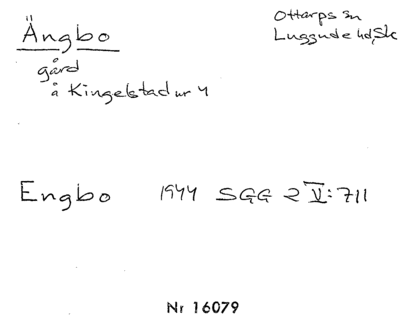 Ängbo
Ottarps sn
Luggude hd, Sk
gård
å Kingelstad nr 4
Engbo 1944 SGG 2 V: 711
Nr 16079